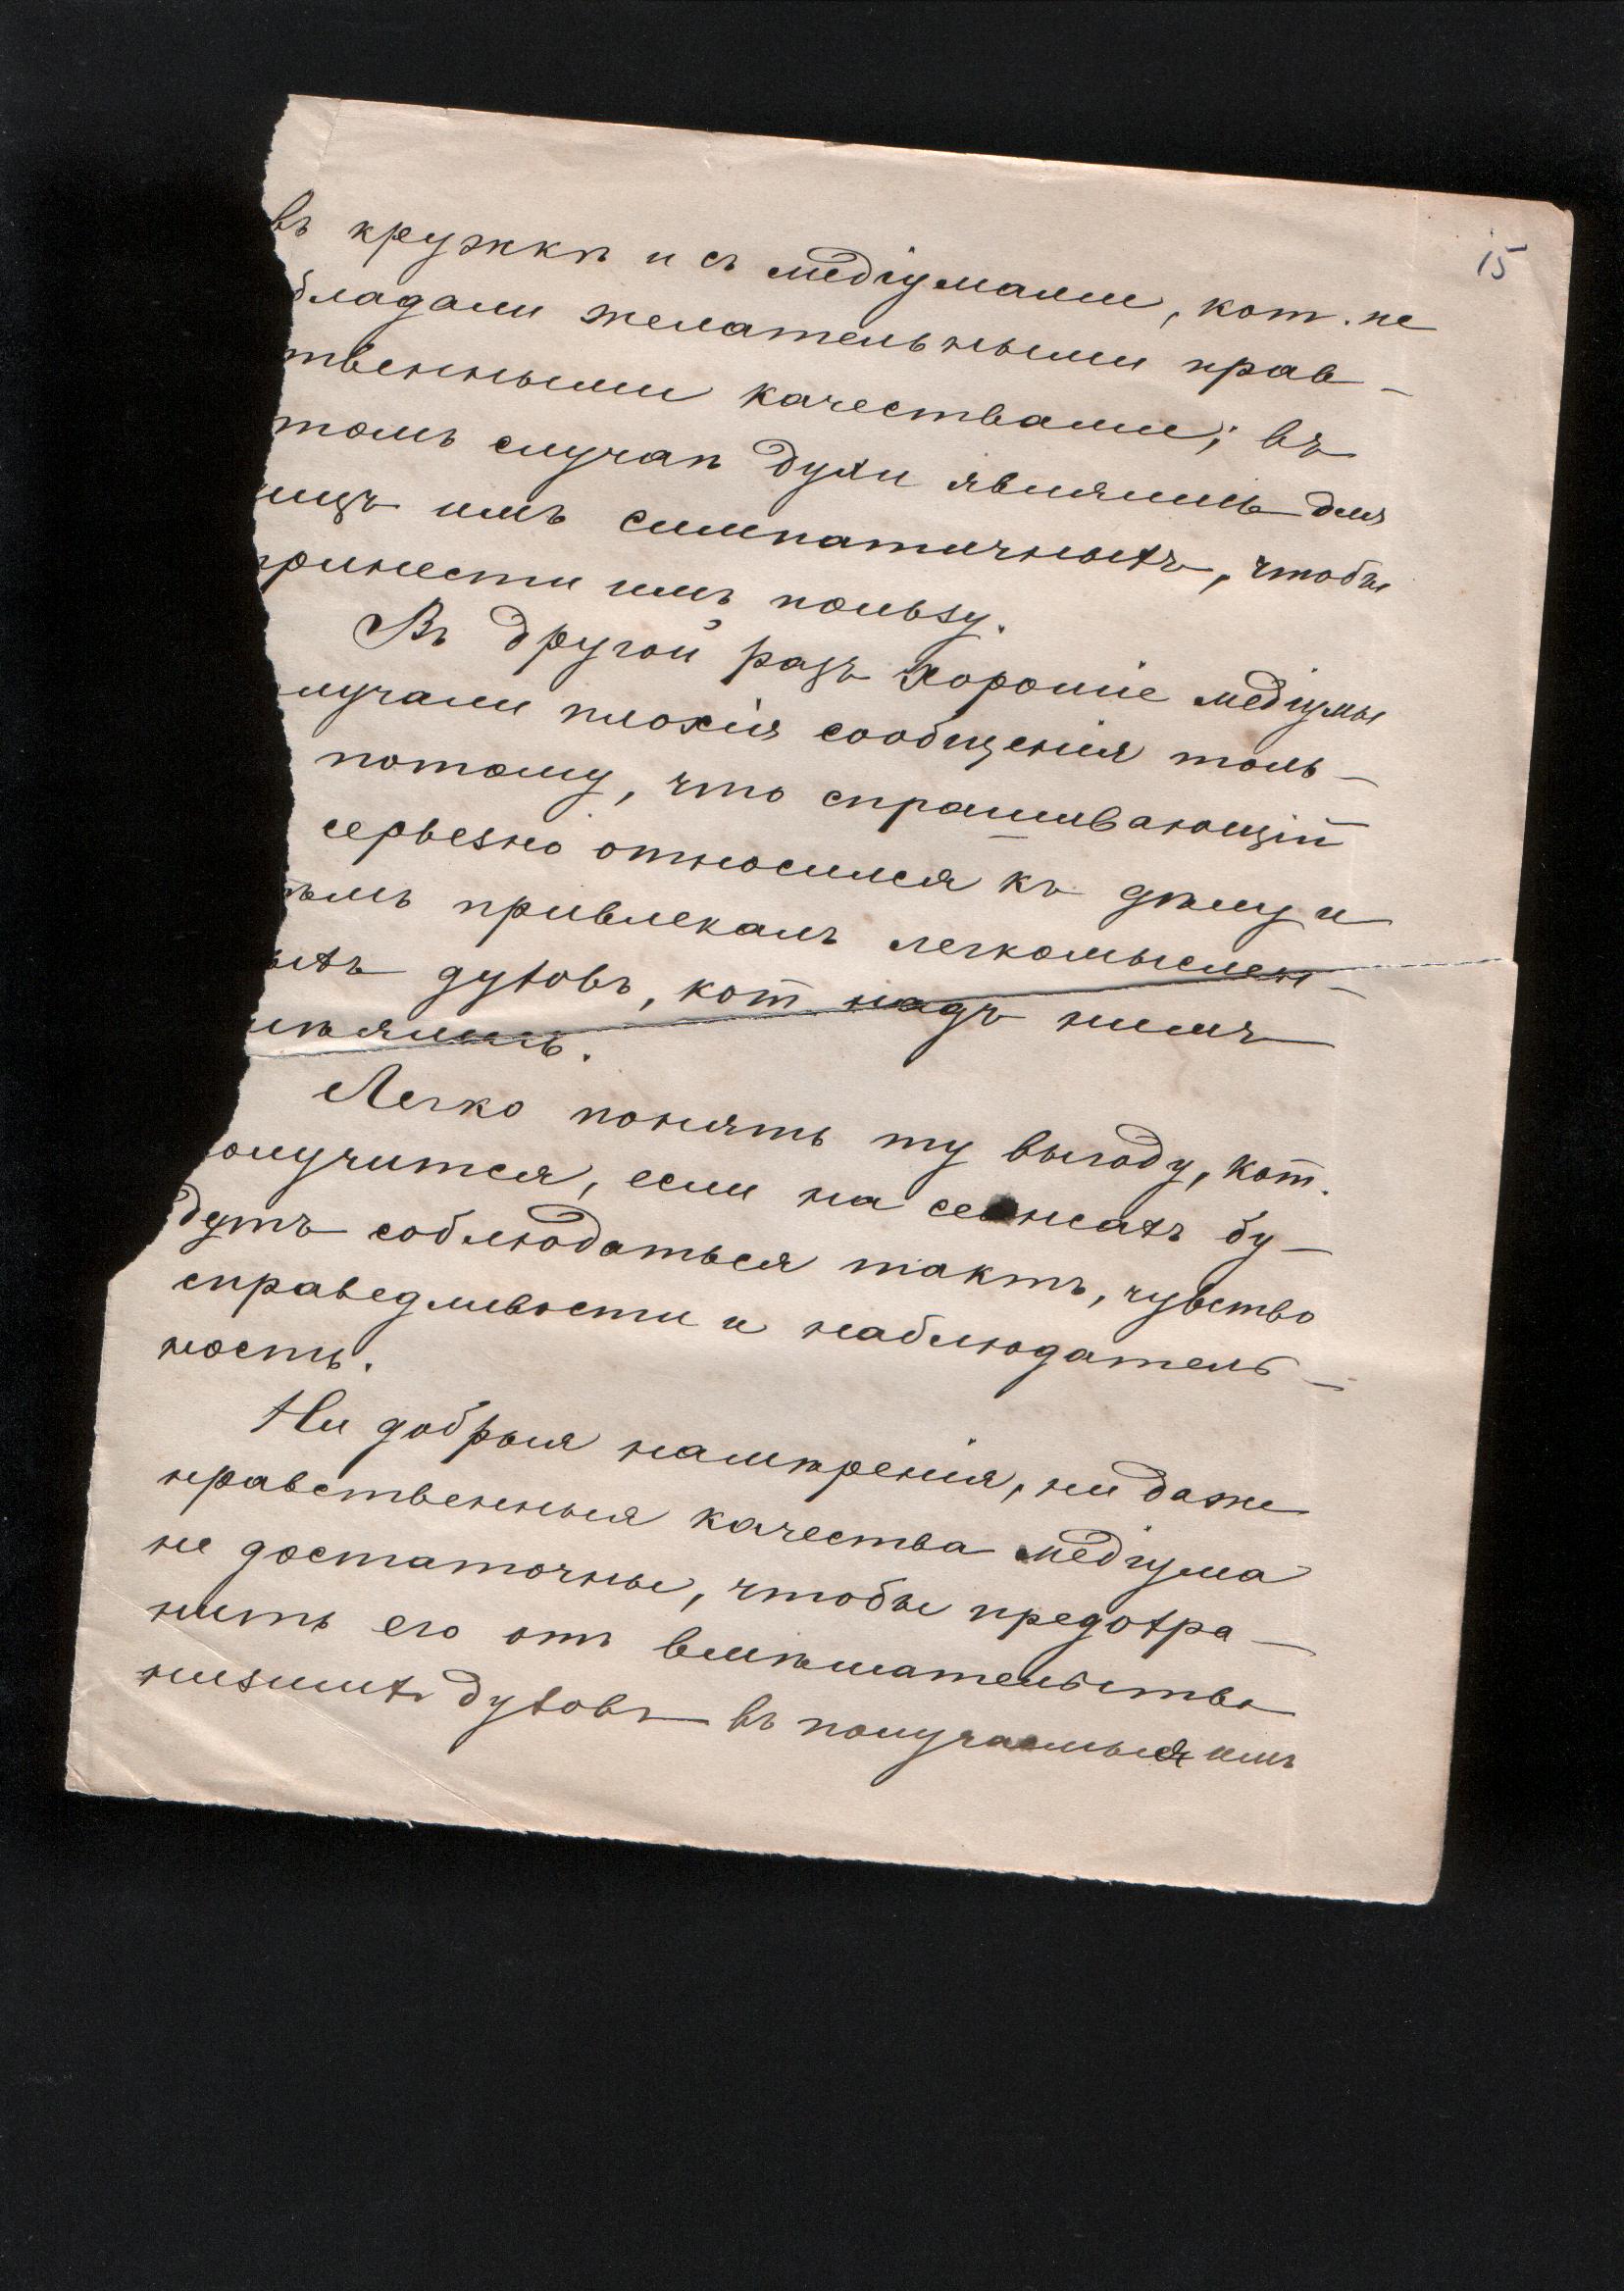 15
въ кружкѣ и съ медіумами, кот. не
бладали желательными нрав-
твенными качествами; въ
томъ случаѣ духи являлись для
лицъ имъ симпатичныхъ, чтобы
принести имъ пользу.
Въ другой разъ хорошіе медіумы
лучали плохія сообщенія толь-
потому, что спрашивающій
серьезно относился къ дѣлу и
тѣмъ привлекалъ легкомыслен-
ыхъ духовъ, кот. надъ нимъ
мѣялись.
Легко понять ту выгоду, кот.
олучится, если на сеансахъ бу-
дутъ соблюдаться тактъ, чувство
справедливости и наблюдатель-
ность.
Ни добрыя намѣренія, ни даже
нравственныя качества медіума
не достаточны, чтобы предохра-
нить его отъ вмѣшательства
низшихъ духовъ въ получаемыя имъ